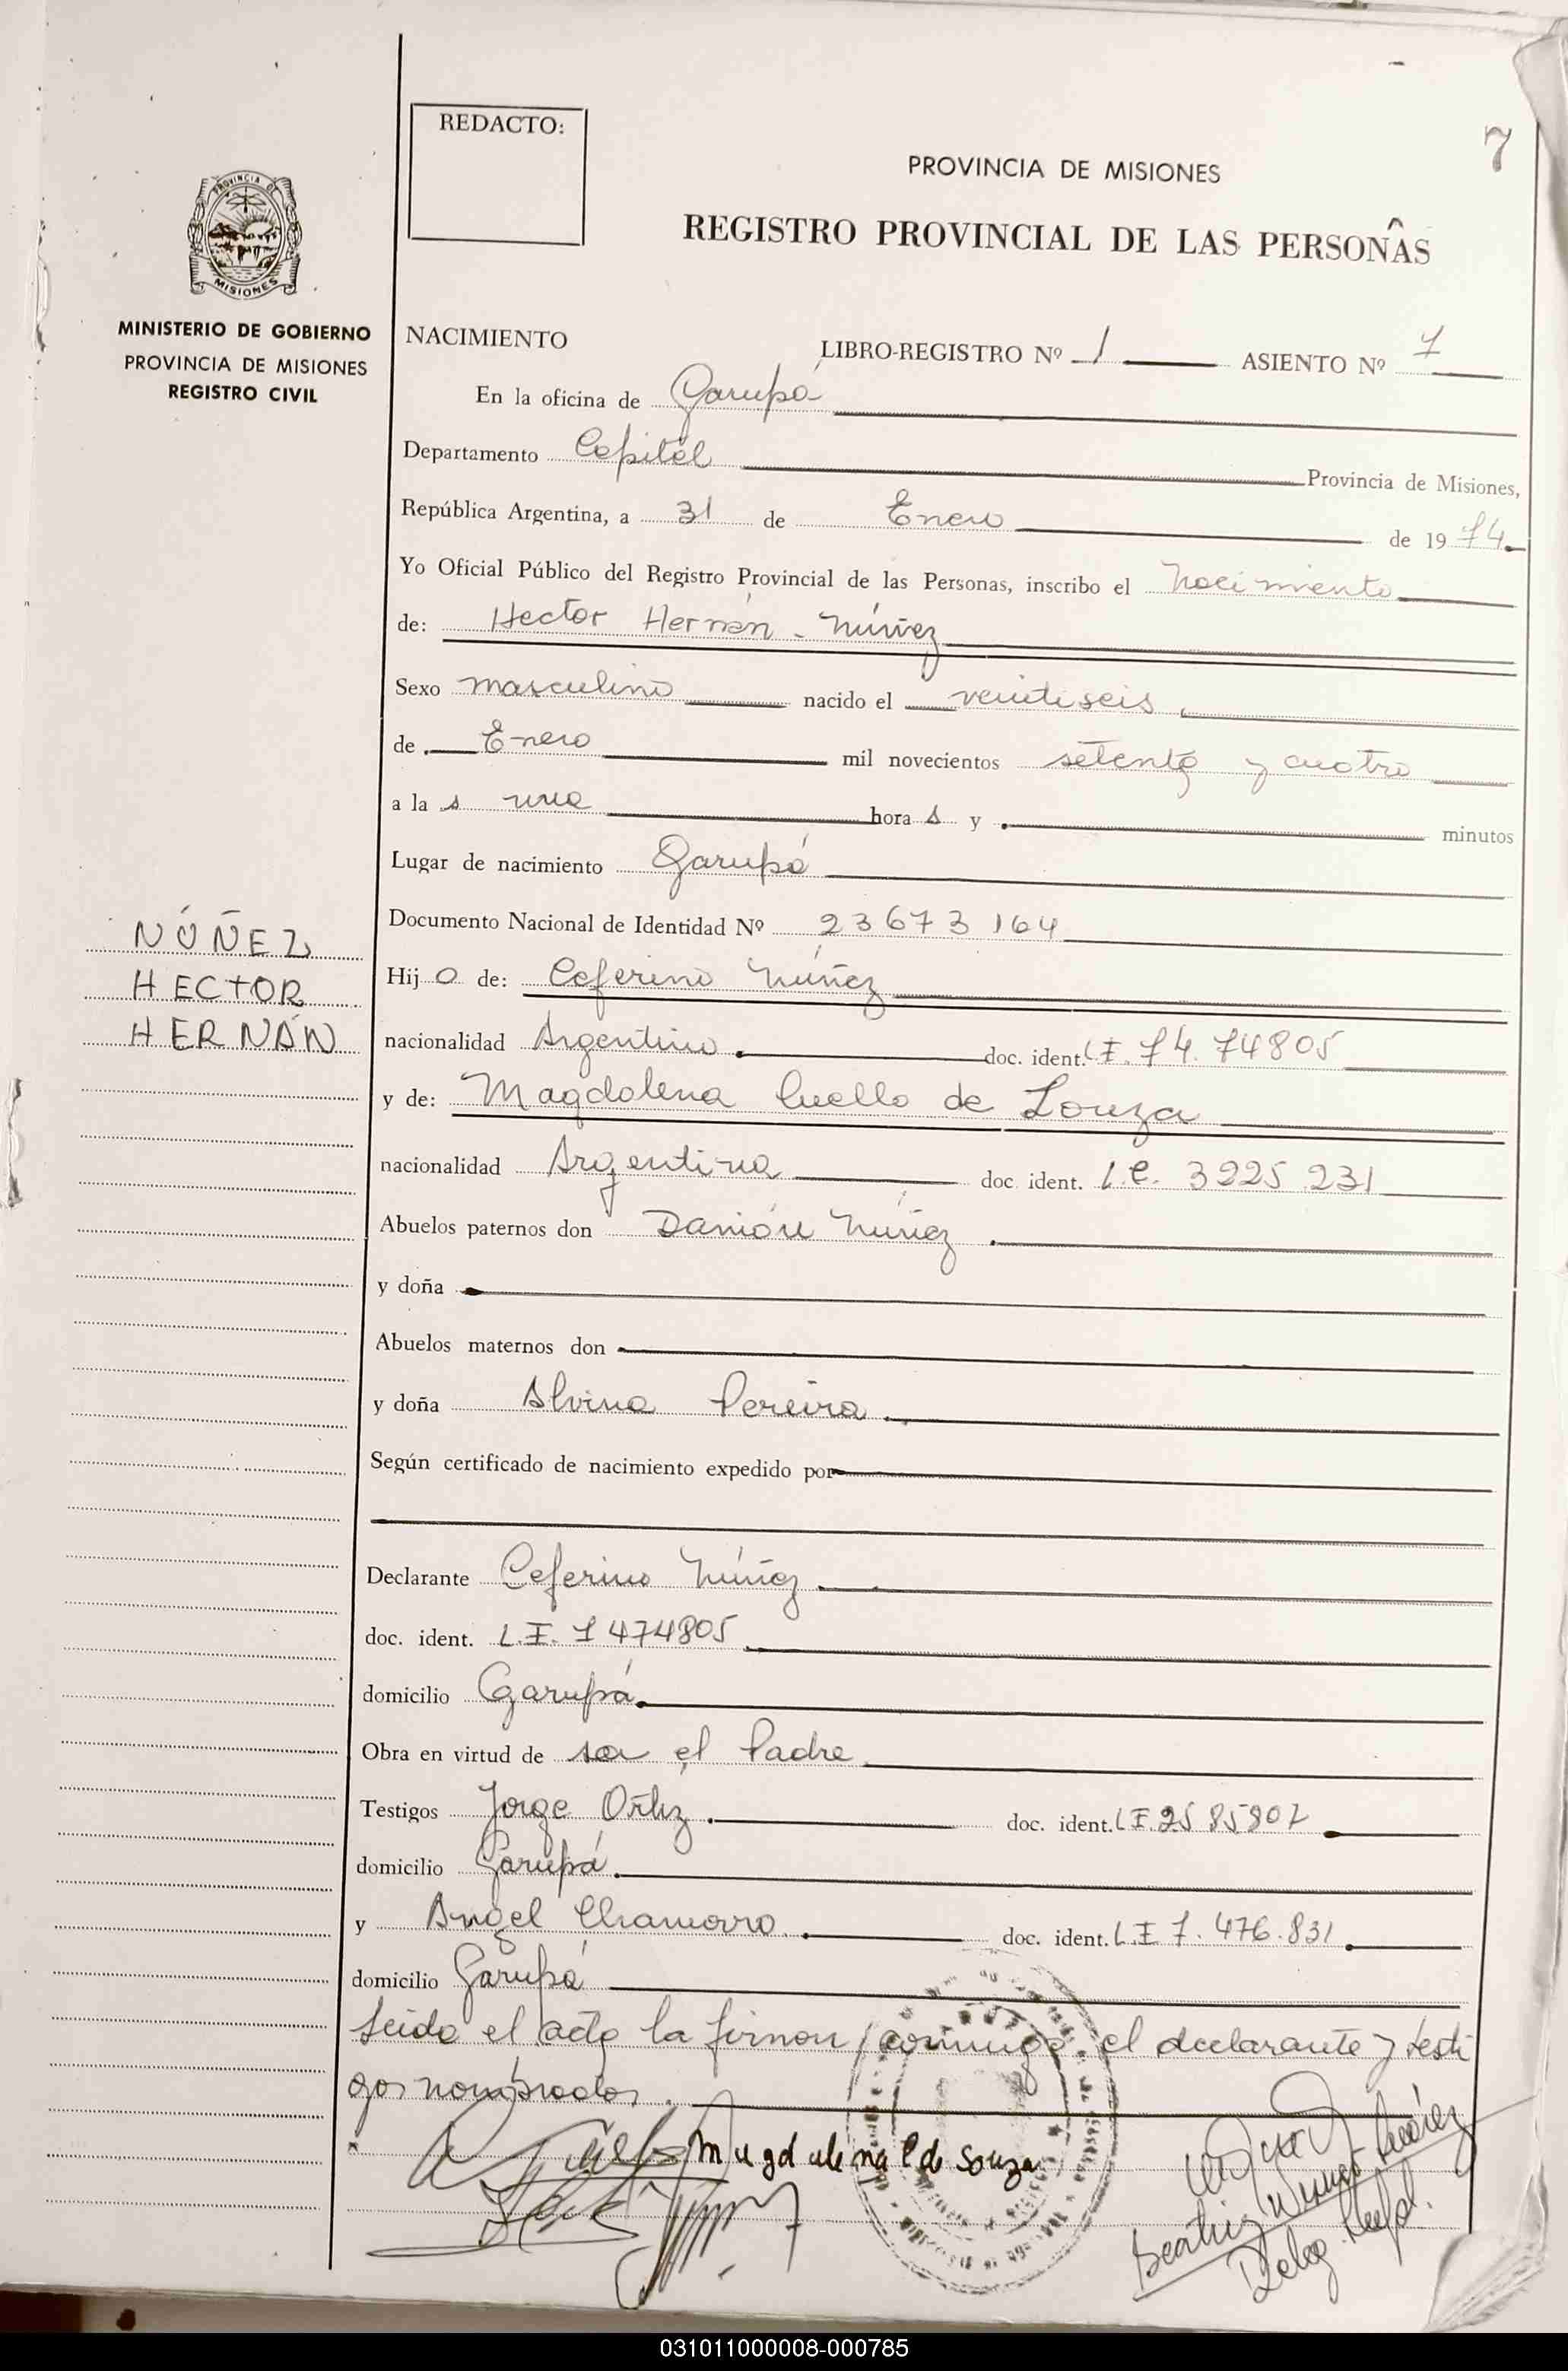 REDACTO:
7
PROVINCIA DE MISIONES
REGISTRO PROVINCIAL DE LAS PERSONAS
PROVINCIA DE
MISIONES
MINISTERIO DE GOBIERNO
PROVINCIA DE MISIONES
REGISTRO CIVIL
NACIMIENTO LIBRO-REGISTRO Nº 1 ASIENTO Nº 7
En la oficina de Garupá
Departamento Capital Provincia de Misiones,
República Argentina, a 31 de Enero de 1974
Yo Oficial Público del Registro Provincial de las Personas, inscribo el nacimiento
de: Hector Hernán - Núñez
Sexo masculino nacido el veintiseis
de Enero mil novecientos setenta y cuatro
a la s una hora s y minutos
Lugar de nacimiento Garupá
Documento Nacional de Identidad Nº 23673164
NÚÑEZ
HECTOR
HERNÁN
Hijo de: Ceferino Núñez
nacionalidad Argentino. doc. ident. L.I. 74.74805
y de: Magdalena Cuello de Souza
nacionalidad Argentina doc. ident. L.C. 3225.231
Abuelos paternos don Damián Núñez
y doña
Abuelos maternos don
y doña Alvina Pereira
Según certificado de nacimiento expedido por
Declarante Ceferino Núñez
doc. ident. L.I. 7474805
domicilio Garupá
Obra en virtud de ser el Padre
Testigos Jorge Ortiz doc. ident. L.I. 2585807
domicilio Garupá
y Angel Chamorro doc. ident. L.I 7.476.831
domicilio Garupá
Leida el acta la firman conmigo el declarante y testi
gos nombrados.
Magdalena C de Souza
Beatriz Suárez
Deleg. Regl.
031011000008-000785